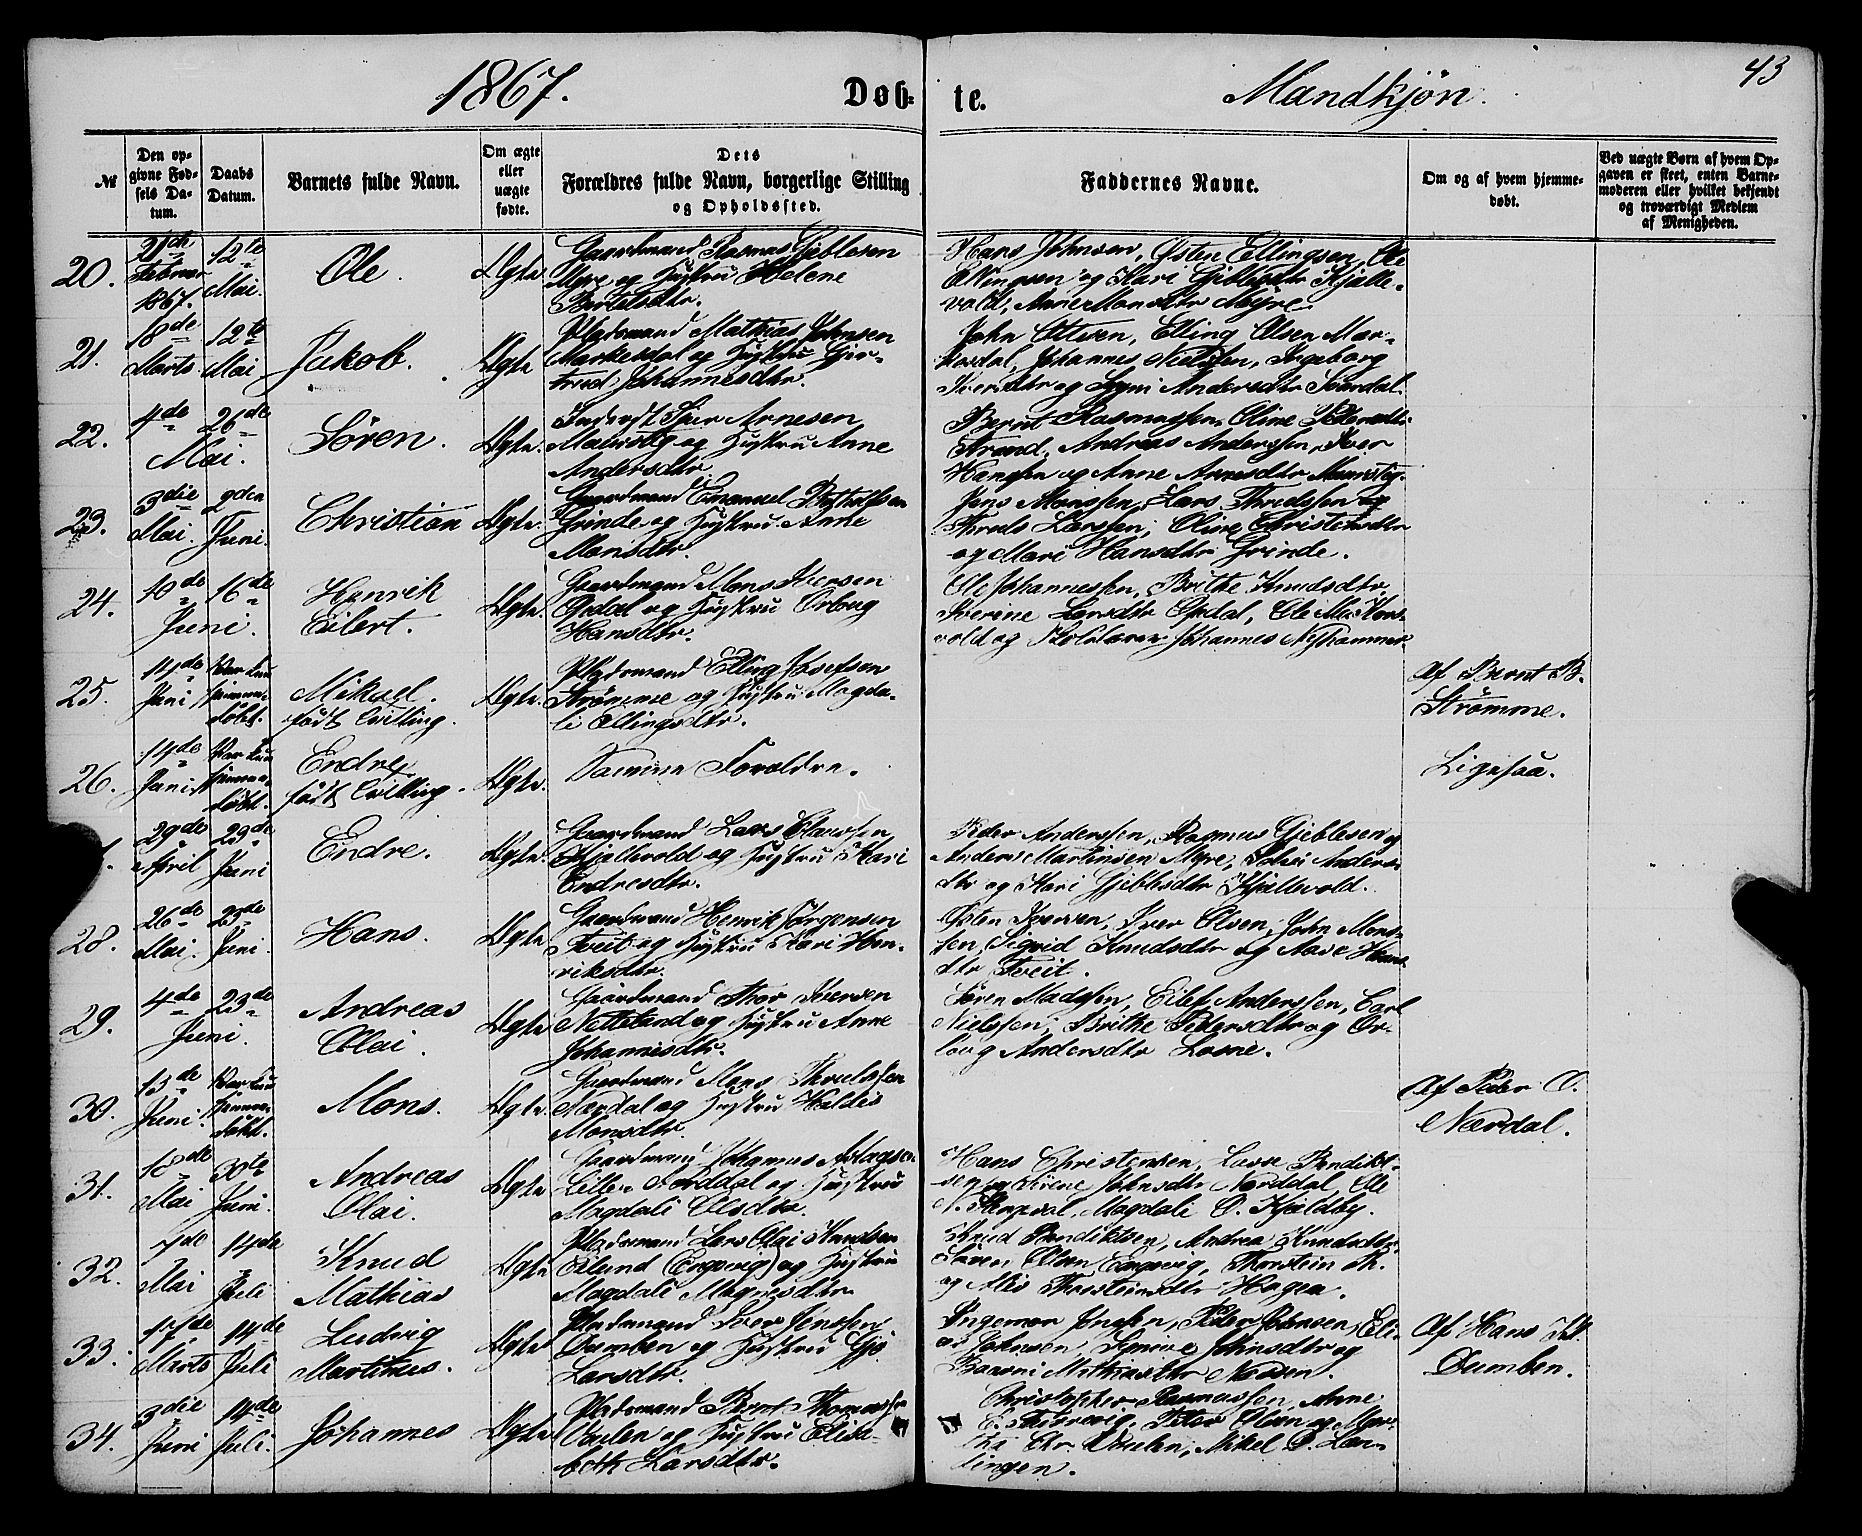 1867. Døb= te. Mandkjøn. 43
№
Den op=
givne Fød=
sels Da=
tum.
Daabs
Datum.
Barnets fulde Navn.
Om ægte
eller
uægte
fødte.
Dets
Forældres fulde Navn, borgerlige Stilling
og Opholdssted.
Faddernes Navne.
Om og af hvem hjemme=
døbt.
Ved uægte Børn af hvem Op=
gaven er skeet, enten Barne=
moderen eller hvilket bekjendt
og troværdigt Medlem
af Menigheden.
20.
21de
Februar
1867.
12te
Mai.
Ole.
Ægte.
Gaardmand Rasmus Gjeblesen
Myre og Hustru Helene
Bertelsdtr.
Hans Johnsen, Østen Ellingsen, Ole
Ellingsen og Kari Gjeblesdtr Kjelle-
vold, Anne Monsdtr Myre
21.
18de
Marts
12te
Mai
Jakob.
Ægte
Pladsmand Mathias Johnsen
Markesdal og Hustru Gjer-
trud Johannesdtr.
John Ottesen, Elling Olsen Mar-
kesdal, Johannes Nielsen, Ingeborg
Iversdtr og Synni Andersdtr Sværdal.
22.
4de
26de
Mai.
Søren.
Ægte.
Inderst Iver Arnesen
Maurstig og Hustru Anne
Andersdtr.
Bernt Rasmussen, Oline Pedersdtr
Strand, Andreas Anderssen, Iver
Hanssen og Anne Arnesdtr Maurstig.
23.
3die
Mai.
2den
Juni.
Christian
Ægte.
Gaardmand Emanuel
Grinde og Hustru Anne
Monsdtr.
Jens Monssen, Lars Thredssen og
Threds Larssen, Oline Christensdtr
og Mari Hansdtr Grinde.
24.
10de
16de
Juni.
Henrik
Eilert.
Ægte.
Gaardmand Mons Iversen
Opdal og Hustru Orbeug
Hansdtr.
Ole Johannessen, Brithe Knudsdtr,
Iverine Larsdtr Opdal, Ole M.
vold og Skolelærer Johannes Nyhammer.
25.
14de
Juni
Var kun
hjemme-
døbt.
Mikael.
født Tvilling.
Ægte.
Pladsmand Elling Josefsen
Strømme og Hustru Magda-
li Ellingsdtr.
Af Bernt B.
Strømme.
26.
14de
Juni
Var kun
hjemme-
døbt.
Endre,
født Tvilling.
Ægte.
Samme Forældre.
Ligesaa.
29de
April
23de
Juni
Endre.
Ægte.
Gaardmand Lars Clausen
Kjellevold og Hustru Kari
Endresdtr.
Peder Anderssen, Rasmus Gjeblesen og
Anders Martinsen Myre, Anders-
dtr og Kari Gjeblesdtr Kjellevold.
28.
26de
Mai.
23de
Juni.
Hans.
Ægte
Gaardmand Henrik Jørgensen
Tveit og Hustru Kari Hen-
riksdtr.
Østen Iversen, Iver Olsen, John Mons-
sen, Sigrid Knudsdtr og Aase Hans-
dtr Tveit.
29.
4de
23de
Juni.
Andreas
Olai.
Ægte
Gaardmand Thor Iversen
Netteland og Hustru Anne
Johannesdtr.
Søren Madssen, Eilef Anderssen, Carl
Nielssen, Brithe Pedersdtr og Or-
loug Andersdtr Losne.
30.
13de
Juni.
Var kun
hjemme-
døbt.
Mons.
Ægte.
Gaardmand Mons Thredssen
Nærdal og Hustru Haldis
Monsdtr.
Af Peder O.
Nærdal.
31.
18de
Mai
30te
Juni.
Andreas
Olai.
Ægte
Gaardmand Johannes
Lille-Norddal og Hustru
Magdali Olsdtr.
Hans Christensen, Lasse Bendikt-
sen og Johnsdtr Norddal, Ole
N. Magdali O. Kjeldby.
32.
7de
Mai
14de
Juli
Knud
Mathias
Ægte
Pladsmand Lars Olai Knudsen
Eilund (Engevig) og Hustru
Magdali Magnesdtr.
Knud Bendiktsen, Andrea Knudsdtr,
Søren Olsen Engevig, Thorstein Th.
og Thorsteinsdtr Hagen.
33.
17de
Marts
14de
Juli
Ludvig
Martinus.
Ægte
Pladsmand Iver Jenssen
Dumben og Hustru
Larsdtr.
Ingeman Jenssen, Peder Johnsen, Eli-
as Johnsen, Synive Johnsdtr og
Mathiasdtr
Af Hans
Dumben.
34.
3die
Juni
14de
Juli.
Johannes
Ægte
Pladsmand Bernt Thomassen
og Hustru Elisa-
beth Larsdtr.
Christopher Rasmussen, Anne
Peter Olsen og Mar-
tha Chr. Mikel
lingen.